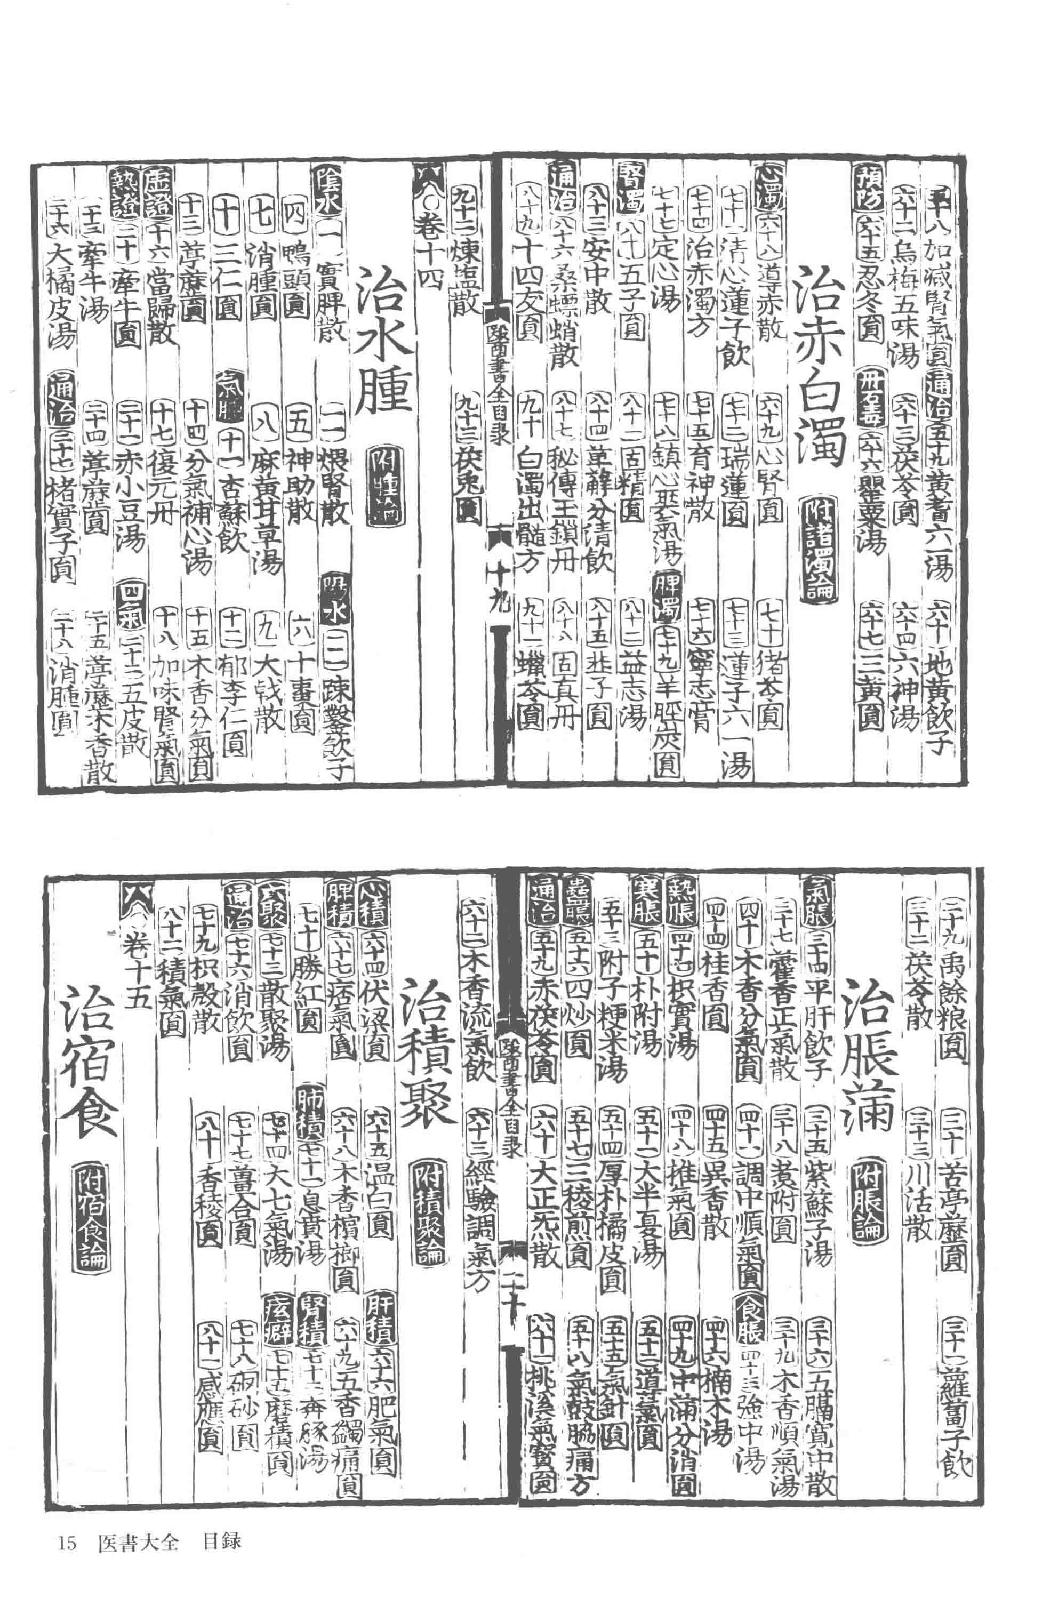 五十八加减腎氣圓 通治 五十九黄耆六一湯 六十地黄飲子
六十二烏梅五味湯 六十三茯苓圓 六十四六神湯
預防 六十五忍冬圓 丹石毒 六十六罌粟湯 六十七三黄圓
治赤白濁 附諸濁論
心濁 六十八導赤散 六十九心腎圓 七十猪苓圓
七十一清心蓮子飲 七十二瑞蓮圓 七十三蓮子六一湯
七十四治赤濁方 七十五育神散 七十六寧志膏
七十七定心湯 七十八鎮心㷊氣湯 脾濁 七十九羊脛炭圓
腎濁 八十五子圓 八十一固精圓 八十二益志湯
八十三安中散 八十四萆薢分清飲 八十五韭子圓
通治 八十六桑螵蛸散 八十七秘傳玉鎖丹 八十八固真丹
八十九十四友圓 九十白濁出髓方 九十一蠟苓圓
九十二煉塩散 九十三茯兎圓
醫書全目录 十九
卷十四
治水腫 附腫論
陰水 一實脾散 二煨腎散 陽水 三疎鑿飲子
四鴨頭圓 五神助散 六十棗圓
七消腫圓 八麻黄甘草湯 九大戟散
十三仁圓 氣腫 十一杏蘇飲 十二郁李仁圓
十三葶藶圓 十四分氣補心湯 十五木香分氣圓
虚證 十六當歸散 十七復元丹 十八加味腎氣圓
熱證 二十牽牛圓 二十一赤小豆湯 四氣 二十二五皮散
二十三牽牛湯 二十四葶藶圓 二十五葶藶木香散
二十六大橘皮湯 通治 二十七楮實子圓 二十八消腫圓
二十九禹餘粮圓 三十苦葶藶圓 三十一蘿蔔子飲
三十二茯苓散 三十三川活散
治脹滿 附脹論
氣脹 三十四平肝飲子 三十五紫蘇子湯 三十六五膈寬中散
三十七藿香正氣散 三十八黄附圓 三十九木香順氣湯
四十木香分氣圓 四十一調中順氣圓 食脹 四十三強中湯
四十四桂香圓 四十五異香散 四十六楠木湯
熱脹 四十七枳實湯 四十八推氣圓 四十九中滿分消圓
寒脹 五十朴附湯 五十一大半夏湯 五十二導氣圓
五十三附子粳米湯 五十四厚朴橘皮圓 五十五氣針圓
蠱脹 五十六四炒圓 五十七三稜煎圓 五十八氣鼓脇痛方
通治 五十九赤茯苓圓 六十大正炁散 六十一桃溪氣寶圓
六十二木香流氣飲 六十三經驗調氣方
醫書全目录 二十
治積聚 附積聚論
心積 六十四伏梁圓 六十五温白圓 肝積 六十六肥氣圓
脾積 六十七痞氣圓 六十八木香檳榔圓 六十九五香蠲痛圓
七十勝紅圓 肺積 七十一息賁湯 腎積 七十二奔豚湯
六聚 七十三散聚湯 七十四大七氣湯 痃癖 七十五磨積圓
通治 七十六消飲圓 七十七薑合圓 七十八硇砂圓
七十九枳殻散 八十香稜圓 八十一感應圓
八十二積氣圓
卷十五
治宿食 附宿食論
15 医書大全 目録